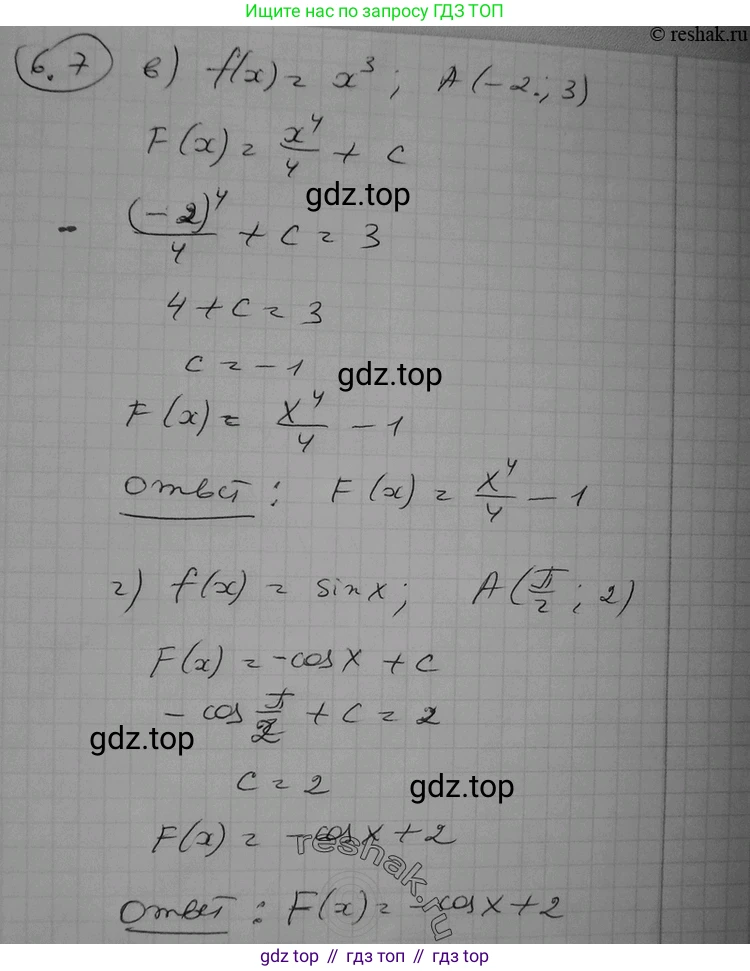 Ищите нас по запросу ГДЗ ТОП
© reshak.ru
6.7 в) f(x) = x³; A(-2; 3)
F(x) = x⁴/4 + c
gdz.top
- (-2)⁴/4 + c = 3
4 + c = 3
c = -1
gdz.top
F(x) = x⁴/4 - 1
Ответ: F(x) = x⁴/4 - 1
г) f(x) = sin x; A(π/2; 2)
F(x) = -cos x + c
- cos π/2 + c = 2
gdz.top
c = 2
gdz.top
F(x) = -cos x + 2
reshak.ru
Ответ: F(x) = -cos x + 2
gdz.top // гдз топ // gdz.top